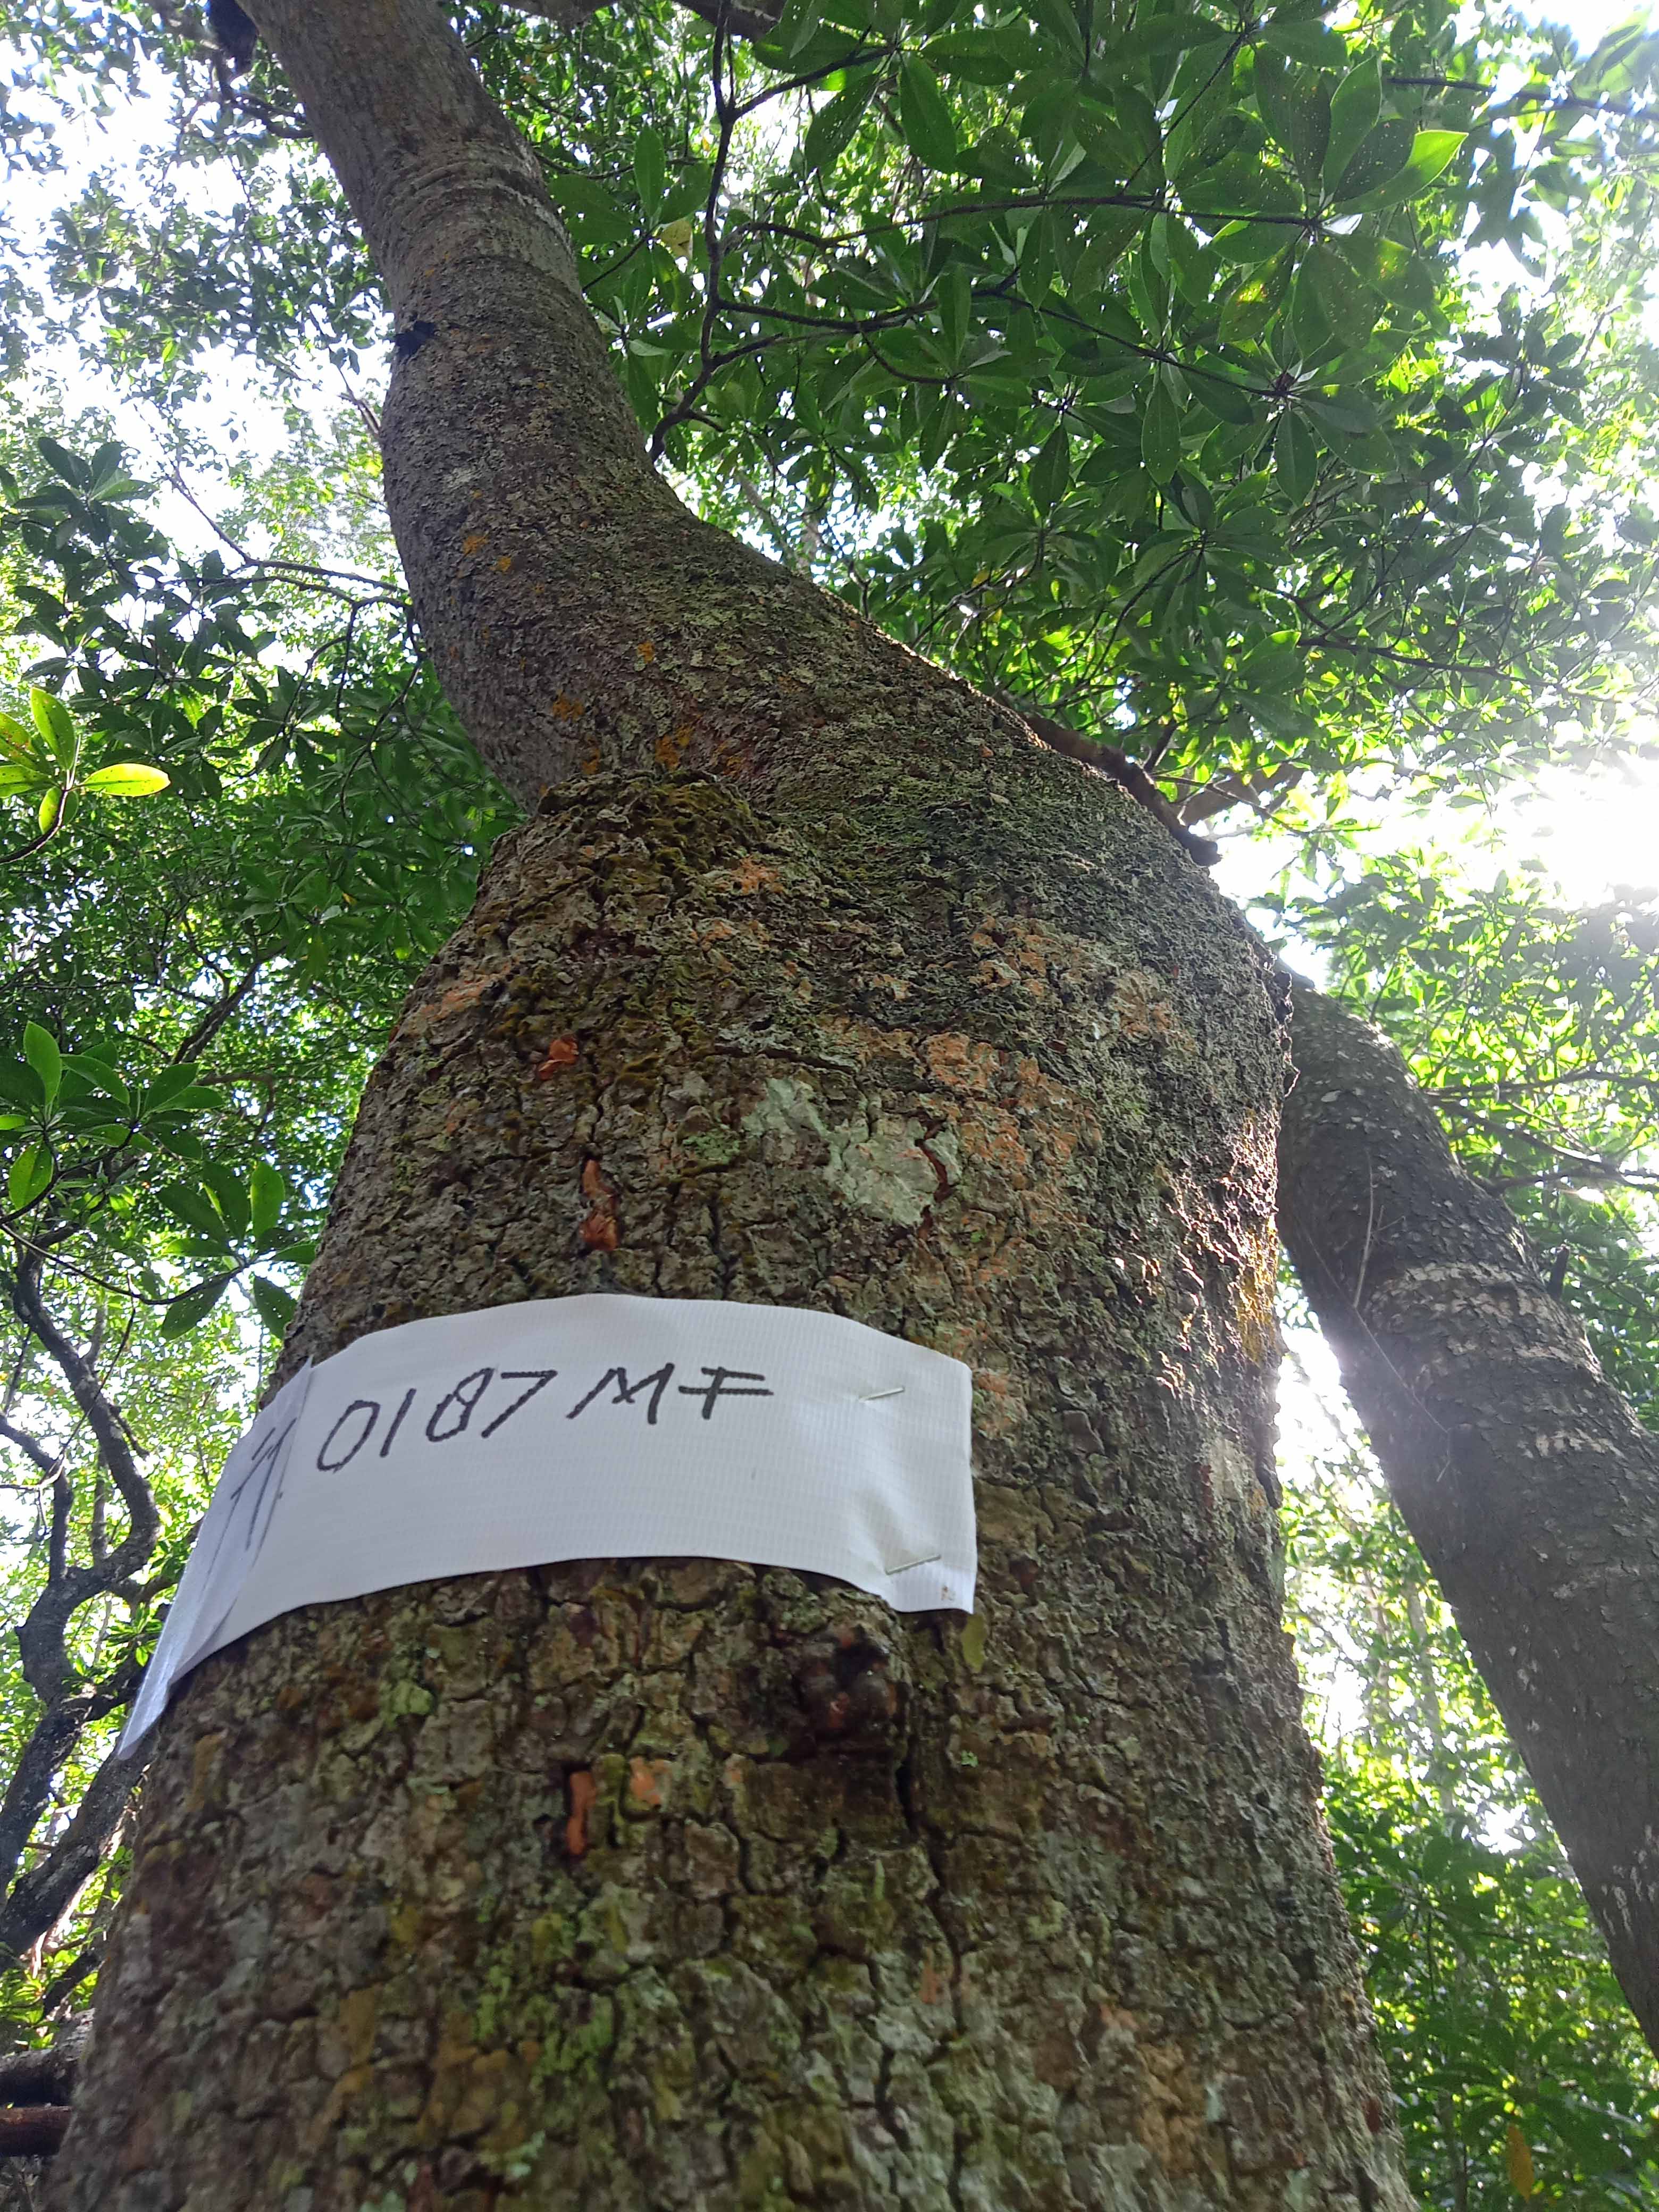 0187 MF